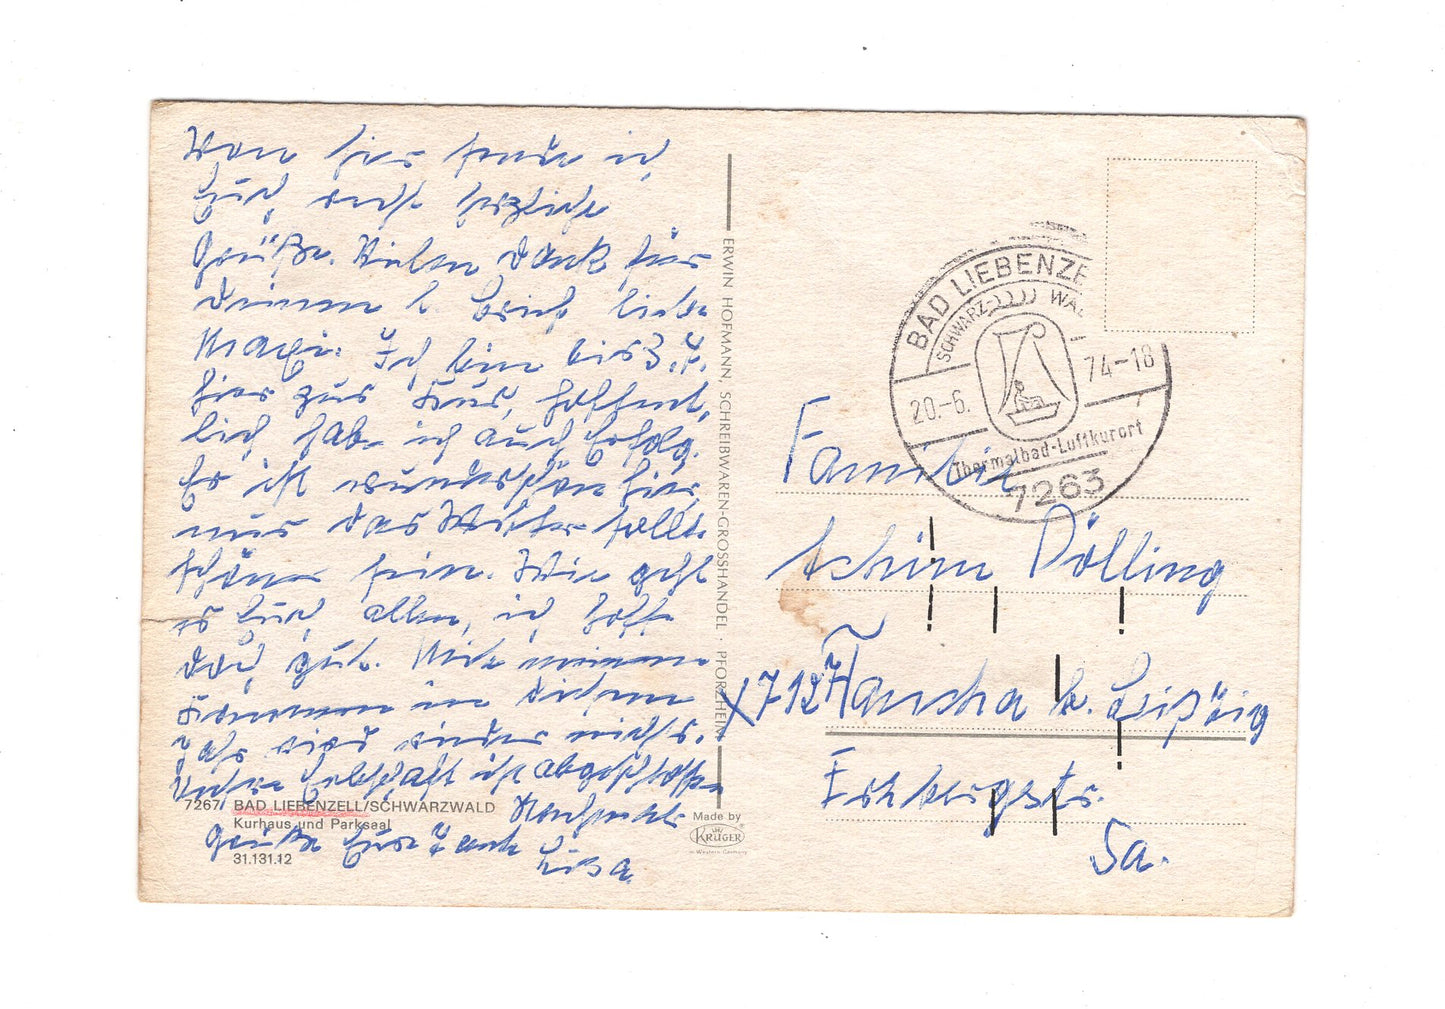 Von hier sende ich
Euch recht herzliche
Grüße. Vielen Dank für
Deinen l. Brief liebe
Magi. Ich bin bis 3.7.
hier zur Kur, hoffent-
lich habe ich auch Erfolg.
Es ist wunderschön hier,
nur das Wetter sollte
schöner sein. Wie geht
es Euch allen, ich hoffe
doch gut. Mit meinem
Kommen in diesem
Jahr wird wieder nichts.
Unsere Erbschaft ist abgeschlossen
Nochmals
Grüße Eure Tante
Lisa
7267/ BAD LIEBENZELL/SCHWARZWALD
Kurhaus und Parksaal
31.131.12
ERWIN HOFMANN, SCHREIBWAREN-GROSSHANDEL · PFORZHEIM
Made by
KRÜGER
Western Germany
BAD LIEBENZE
SCHWARZ- WAL
20.-6. 74-18
Thermalbad-Luftkurort
7263
Familie
Achim Dölling
X 7127 Taucha b. Leipzig
Sa.